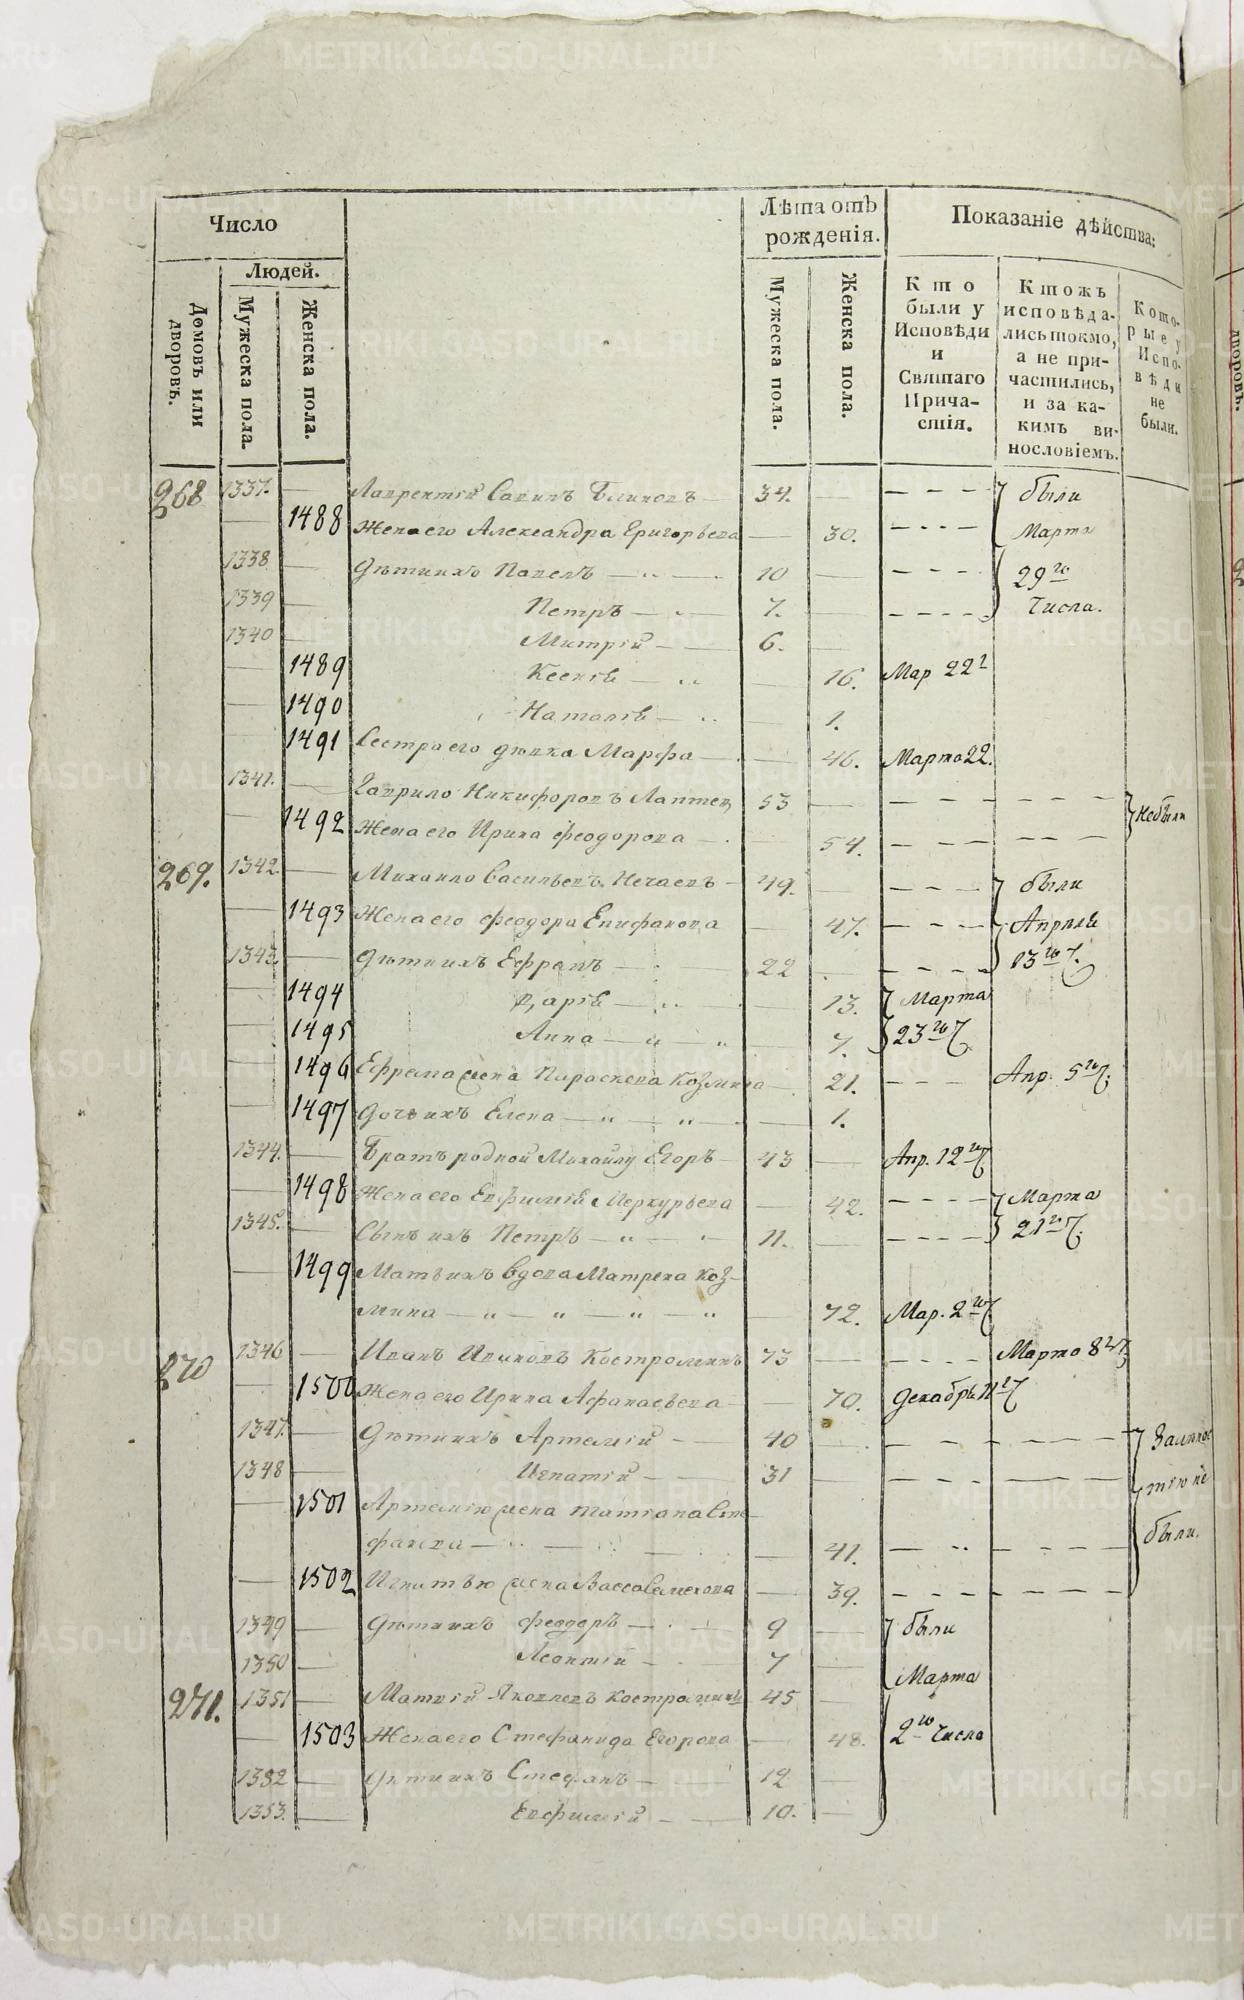 Число
Людей.
Домовъ или дворовъ.
Мужеска пола.
Женска пола.
Лѣта отъ рожденія.
Мужеска пола.
Женска пола.
Показаніе дѣйства:
Кто были у Исповѣди и Святаго Причастія.
Ктожъ исповѣдались токмо, а не причастились, и за какимъ винословіемъ.
Которые у Исповѣди не были.
268 1337. Лаврентій Савинъ Блиновъ 34. были
1488 Жена его Александра Григорьева 30. Марта
1338 Дѣти ихъ Павелъ 10 29го
1339 Петръ 7. Числа.
1340 Митрій 6.
1489 Ксенія 16. Мар 22
1490 Наталія 1.
1491 Сестра его дѣвка Марфа 46. Марта 22.
1341. Гаврило Никифоровъ Лаптев 53 Небыли
1492 Жена его Ирина Феодорова 54.
269. 1342. Михаило Васильевъ Нечаевъ 49. были
1493 Жена его Феодора Епифанова 47. Апрѣля
1343. Дѣти ихъ Ефремъ 22 13го Ч.
1494 Дарія 13. Марта
1495 Анна 7. 23го Ч
1496 Ефрема жена Параскева Козмина 21. Апр. 5го Ч.
1497 Дочь ихъ Елена 1.
1344. Братъ родной Михайлу Егоръ 43 Апр. 12го Ч
1498 Жена его Евфимія Меркурьева 42. Марта
1345. Сынъ ихъ Петръ 11. 21го Ч.
1499 Мать ихъ вдова Матрена Коз-
мина 72. Мар. 2го Ч
270 1346 Иванъ Костроминъ 73 Марта 8го Ч
1500 Жена его Ирина Афанасьева 70. Декабрь 11го Ч
1347. Дѣти ихъ Артемій 40
1348 Игнатій 31
1501 Артемію жена Татіана Сте-
фанова 41. были.
1502 Игнатью жена Васса Семенова 39.
1349 Дѣти ихъ Феодоръ 9 были
1350 Леонтій 7 Марта
271. 1351 Матвій Яковлевъ Костроминъ 45
1503 Жена его Стефанида Егорова 48. 2го Числа
1352 Дѣти ихъ Стефанъ 12
1353. Евфимій 10.
METRIKI.GASO-URAL.RU